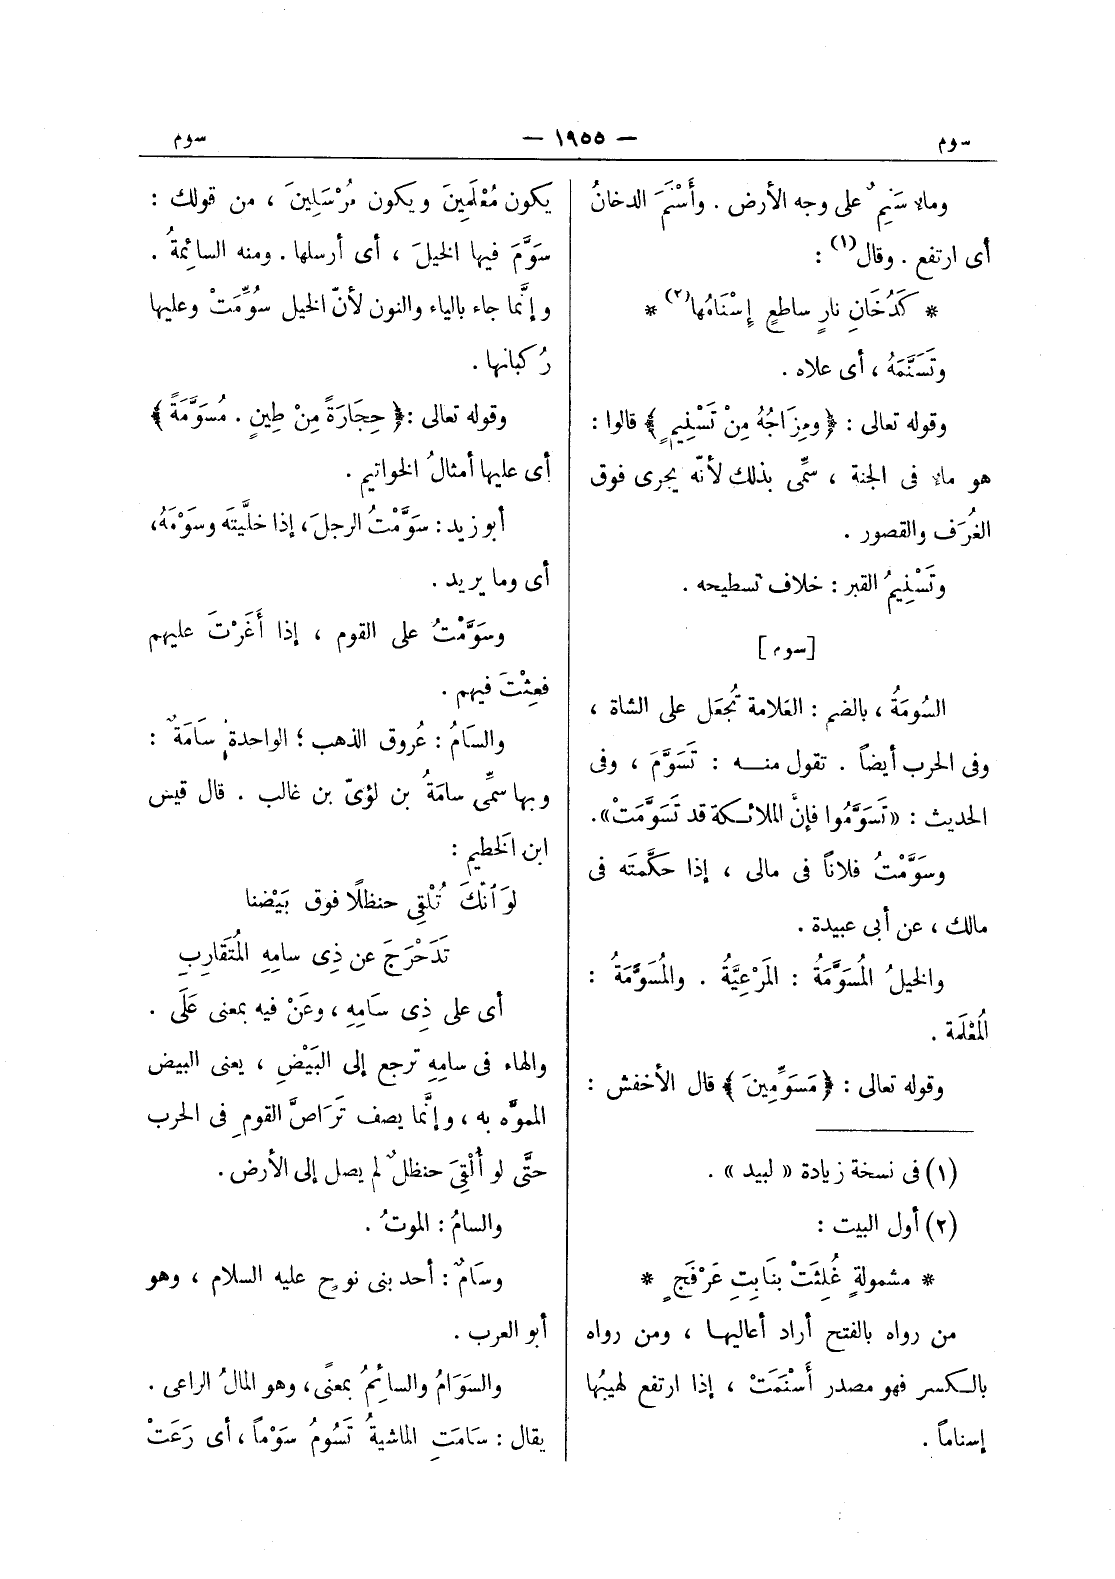 سوم
— ١٩٥٥ —
سوم
وماء سَنِيمٌ على وجه الأرض . وأَسْنَمَ الدخانُ
أى ارتفع . وقال(١) :
* كَدُخَانِ نارٍ ساطعٍ إِسْنَامُها(٢) *
وتَسَنَّمَهُ ، أى علاه .
وقوله تعالى : ﴿ ومِزَاجُهُ مِنْ تَسْنِيمٍ ﴾ قالوا :
هو ماء فى الجنة ، سمِّى بذلك لأنّه يجرى فوق
الغُرَف والقصور .
وتَسْنِيمُ القبر : خلاف تسطيحه .
[سوم]
السُومَةُ ، بالضم : العَلامة تُجعَل على الشاة ،
وفى الحرب أيضاً . تقول منه : تَسَوَّمَ ، وفى
الحديث : «تَسَوَّمُوا فإنَّ الملائكة قد تَسَوَّمَتْ».
وسَوَّمْتُ فلاناً فى مالى ، إذا حكَّمتَه فى
مالك ، عن أبى عبيدة .
والخيلُ المُسَوَّمَةُ : المَرْعِيَّةُ . والمُسَوَّمَةُ :
المُعْلَمة .
وقوله تعالى : ﴿ مَسَوِّمِينَ ﴾ قال الأخفش :
(١) فى نسخة زيادة « لبيد » .
(٢) أول البيت :
* مشمولةٍ غُلِثَتْ بنَابِتِ عَرْفَجٍ *
من رواه بالفتح أراد أعاليها ، ومن رواه
بالكسر فهو مصدر أَسْنَمَتْ ، إذا ارتفع لهيبُها
إسناماً .
يكون مُعْلَمِينَ ويكون مُرْسَلِينَ ، من قولك :
سَوَّمَ فيها الخيلَ ، أى أرسلها . ومنه السائِمةُ .
وإنَّما جاء بالياء والنون لأنّ الخيل سُوِّمَتْ وعليها
رُكبانها .
وقوله تعالى :﴿ حِجَارَةً مِنْ طِينٍ . مُسَوَّمَةً ﴾
أى عليها أمثالُ الخواتيم .
أبو زيد : سَوَّمْتُ الرجلَ، إذا خلَّيتَه وسَوْمَهُ،
أى وما يريد .
وسَوَّمْتُ على القوم ، إذا أَغَرْتَ عليهم
فعِثْتَ فيهم .
والسَامُ : عُروق الذهب ؛ الواحدة سَامَةٌ :
وبها سمِّى سامَةُ بن لؤىّ بن غالب . قال قيس
ابن الخَطيم :
لوَ ٱنّكَ تُلْقِى حنظلًا فوق بَيْضنا
تَدَحْرَجَ عن ذِى سامِهِ المُتَقارِبِ
أى على ذِى سَامِهِ ، وعَنْ فيه بمعنى عَلَى .
والهاء فى سامِهِ ترجع إلى البَيْضِ ، يعنى البيض
المموَّه به ، وإنَّما يصف تَرَاصَّ القومِ فى الحرب
حتَّى لو أُلْقِىَ حنظلٌ لم يصل إلى الأرض .
والسامُ : الموتُ .
وسَامٌ : أحد بنى نوحٍ عليه السلام ، وهو
أبو العرب .
والسَوَامُ والسائِمُ بمعنًى، وهو المالُ الراعى .
يقال : سَامَتِ الماشيةُ تَسُومُ سَوْماً ، أى رَعَتْ